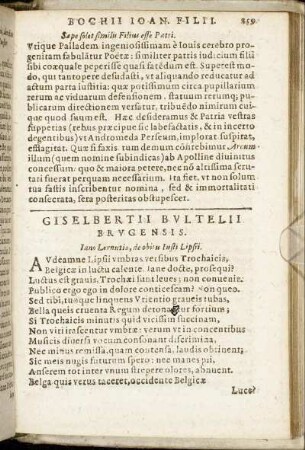 BOCHII IOAN. FILII. 859
Sæpe solet similis Filius esse Patri.
Vtique Palladem ingeniosissimam è Iouis cerebro pro-
genitam fabulãtur Poëtæ: similiter patris iudicium filii
sibi coxquale peperisse quasi fatẽdum est. Superest mo-
do, qui tantopere desudasti, vt aliquando reducatur ad
actum parta iustitia: qux potissimùm circa pupillarium
rerum ac viduarum defensionem, statuum rerumq; pu-
blicarum directionem versatur, tribuẽdo nimirum cui-
que quod suum est. Hæc desideramus & Patria vestras
suppetias (rebus præcipuè sic labefactatis, & in incerto
degentibus) vt Andromeda Perseum, implorat, suspirat,
efflagitat. Quæ si faxis, tum demum confirmabo Arcum
illum (quem nomine subindicas) ab Apolline diuinitus
concessum: quo & maiora petere, nec nô altissima scru-
tari fuerat perquam necessarium. Ita fiet, vt non solum
tua fastis inscribentur nomina, sed & immortalitati
consecrata, sera posteritas obstupescet.
GISELBERTII BVLTELII
BRVGENSIS.
Iano Lernutio, de obitu Iusti Lipsii.
AVdeamne Lipsii vmbras versibus Trochaicis,
Belgicæ in luctu calente, Iane docte, prosequi?
Luctus est grauis: Trochæi sunt leues; non conuenit.
Publico ergo ego in dolore conticescam? Non queo.
Sed tibi, tuisque linquens Vticnio graueis tubas,
Bella queis cruenta Regum detonatur fortium;
Si Trochaicis minutis quid viciissim succinam,
Non vitii rescentur vmbræ: verum vt in concentibus
Musicis diuersa vocum consonant discrimina,
Nec minus remissa, quàm contensa, laudis obtinent;
Sic meis nugis futurum spero: nec manes pii,
Anserem tot inter vnum strepere olores, abnuent.
Belga quis verus taceret, occidente Belgicæ
Luce?